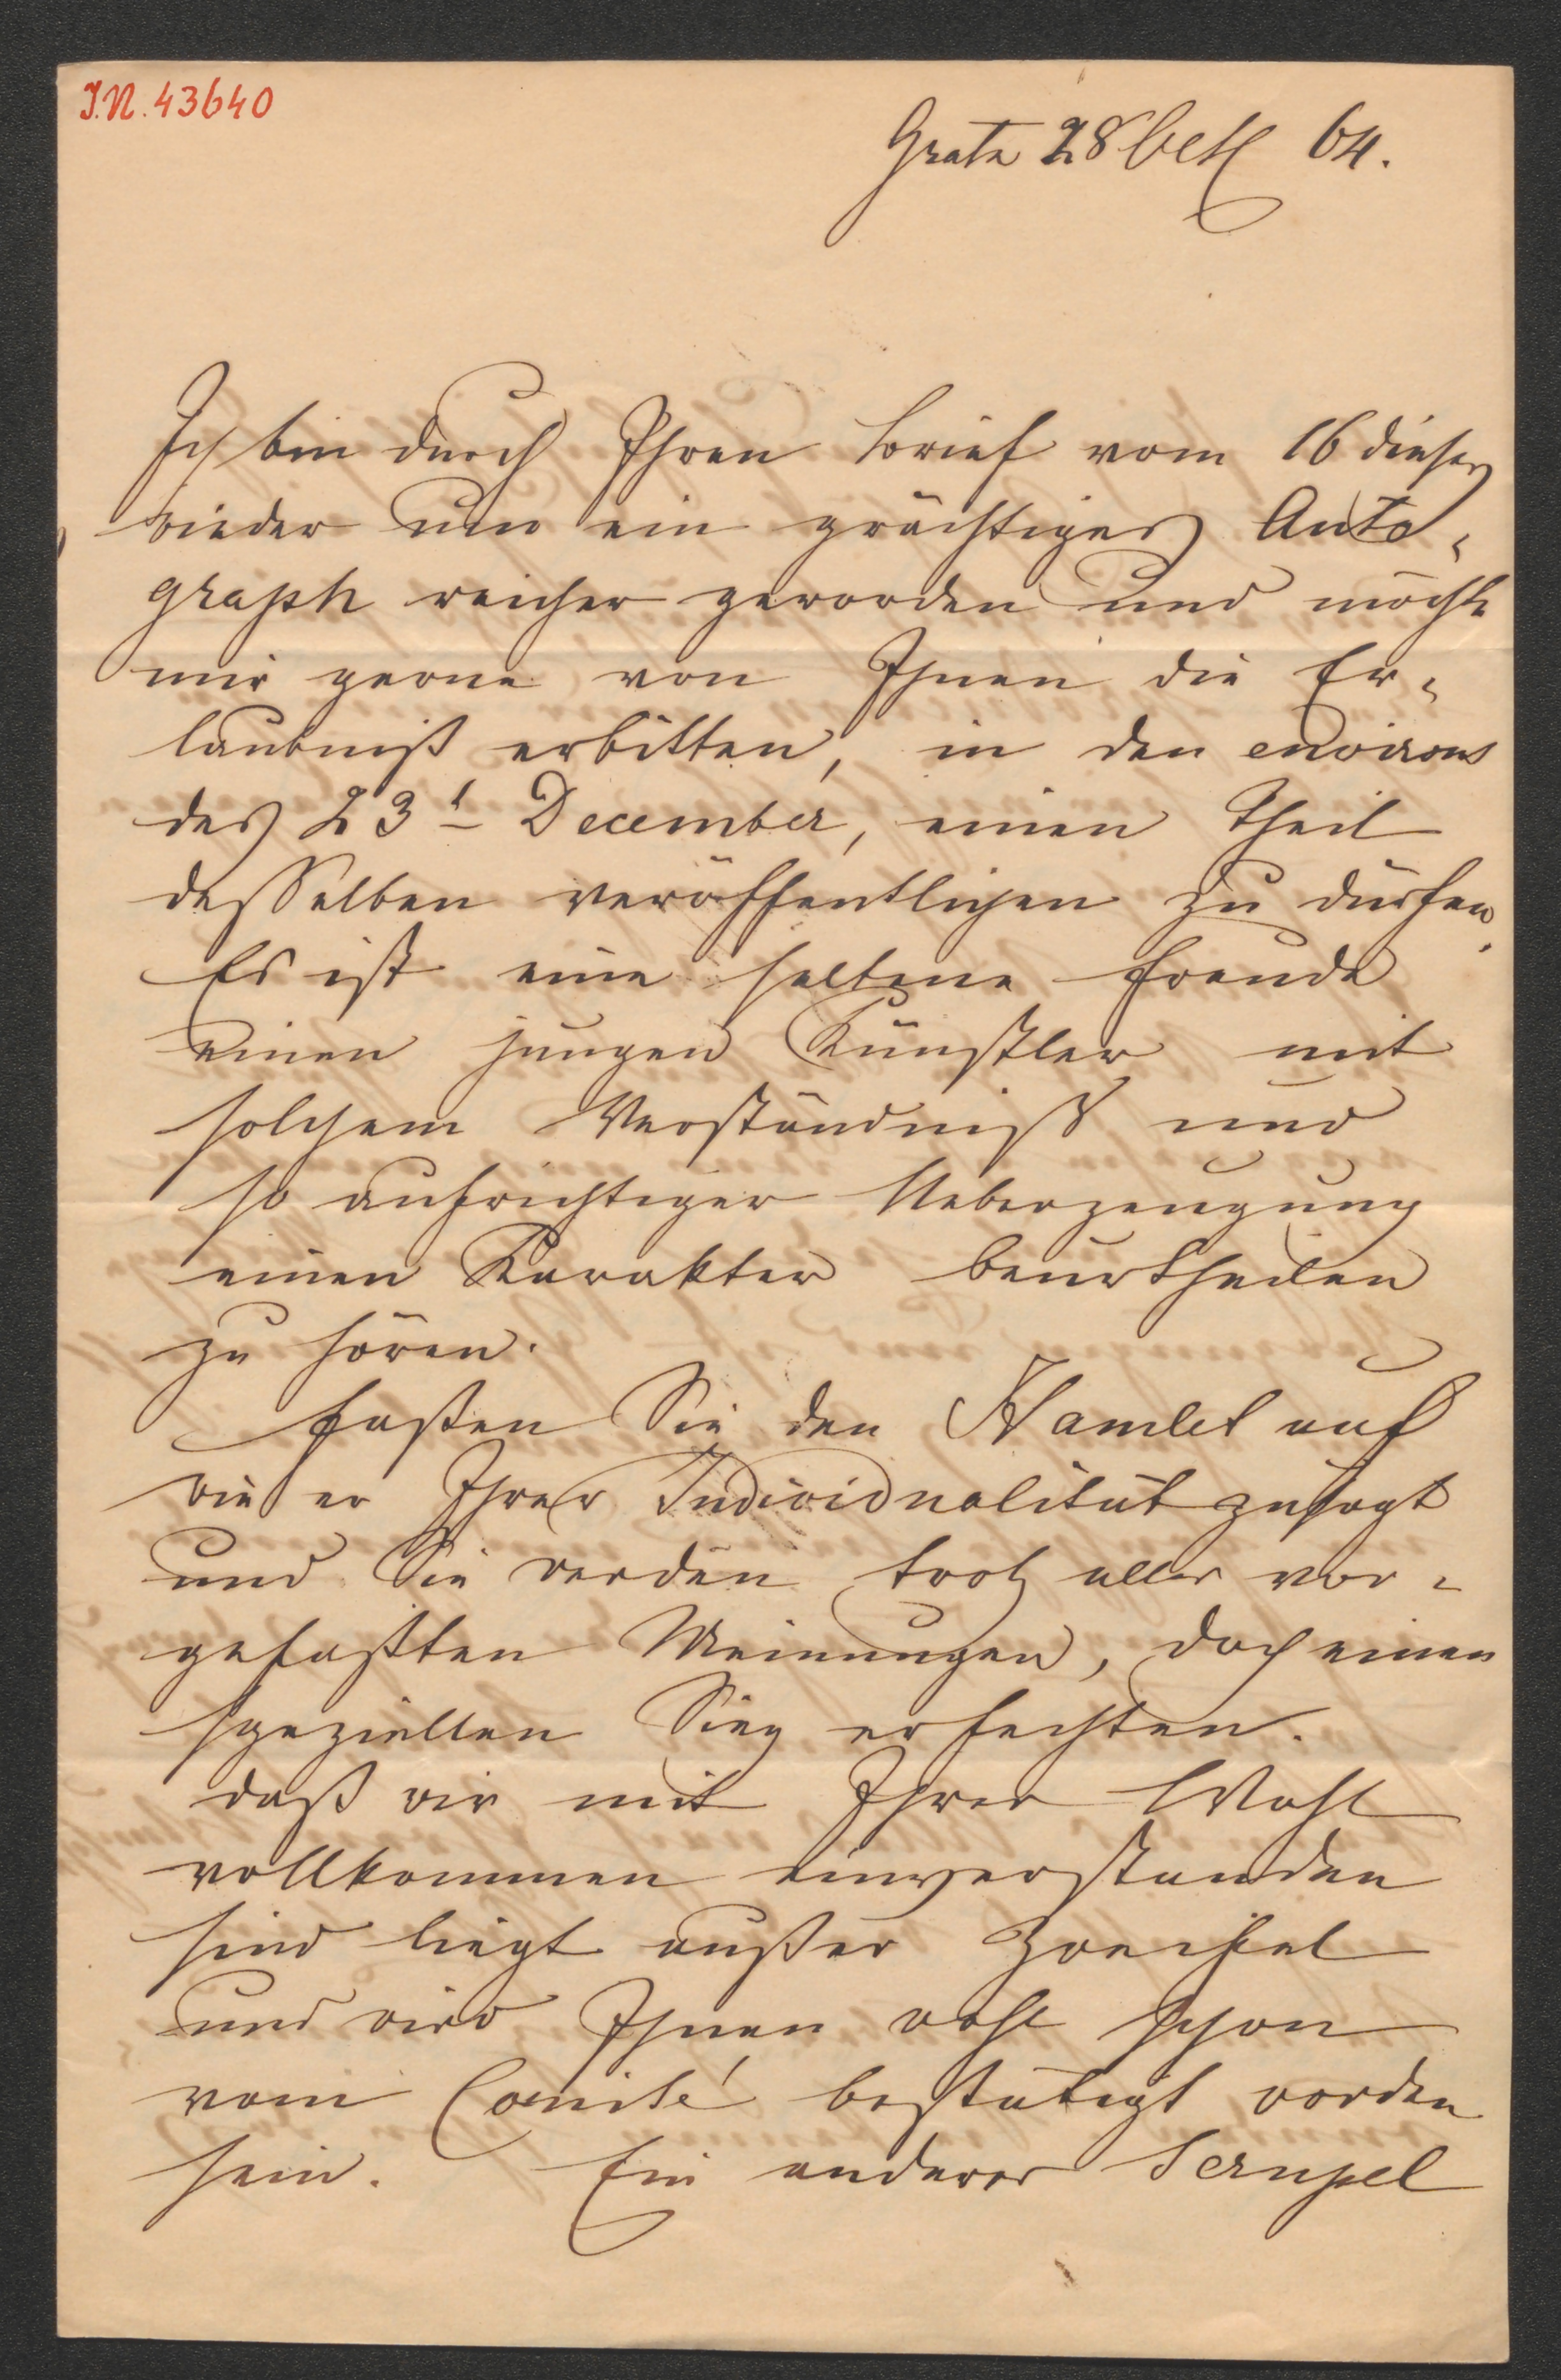 I.N. 43640
Gratz 28 64.
Ich bin durch Ihren Brief vom 16 dieses
wieder um ein prächtiges Auto-
graph reicher geworden und möchte
mir gerne von Ihnen die Er-
laubniß erbitten, in den environs
des 23t December, einen Theil
desselben veröffentlichen zu dürfen.
Es ist eine seltene Freude
einen jungen Künstler mit
solchem Verständniß und
so aufrichtiger Ueberzeugung
einen Karakter beurtheilen
zu hören.
Faßen Sie den Hamlet auf
wie er Ihrer Individualität zusagt
und Sie werden trotz aller vor-
gefaßten Meinungen, doch einen
speziellen Sieg erfechten.
daß wir mit Ihrer Wahl
vollkommen einverstanden
sind liegt außer Zweifel
und wird Ihnen wohl schon
vom Comité bestätigt worden
sein. Ein anderer Scrupel